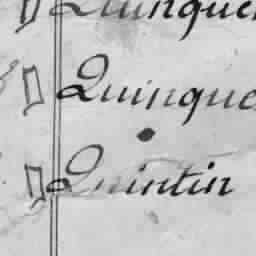 Quinque
Quinque
Quintin